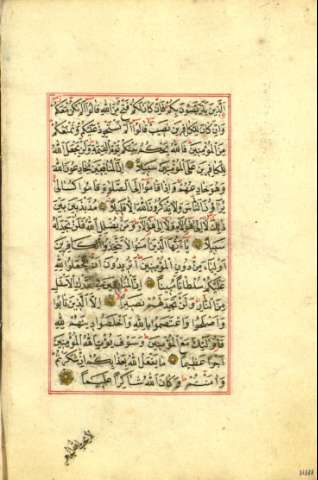 الَّذِينَ يَتَرَبَّصُونَ بِكُمْ فَإِنْ كَانَ لَكُمْ فَتْحٌ مِنَ اللَّهِ قَالُوا أَلَمْ نَكُنْ مَعَكُمْ
وَإِنْ كَانَ لِلْكَافِرِينَ نَصِيبٌ قَالُوا أَلَمْ نَسْتَحْوِذْ عَلَيْكُمْ وَنَمْنَعْكُمْ
مِنَ الْمُؤْمِنِينَ فَاللَّهُ يَحْكُمُ بَيْنَكُمْ يَوْمَ الْقِيٰمَةِ وَلَنْ يَجْعَلَ اللَّهُ
لِلْكَافِرِينَ عَلَى الْمُؤْمِنِينَ سَبِيلًا إِنَّ الْمُنَافِقِينَ يُخَادِعُونَ اللَّهَ
وَهُوَ خَادِعُهُمْ وَإِذَا قَامُوا إِلَى الصَّلٰوةِ قَامُوا كُسَالَى
يُرَاؤُنَ النَّاسَ وَلَا يَذْكُرُونَ اللَّهَ إِلَّا قَلِيلًا مُذَبْذَبِينَ بَيْنَ
ذٰلِكَ لَا إِلَى هٰؤُلَاءِ وَلَا إِلَى هٰؤُلَاءِ وَمَنْ يُضْلِلِ اللَّهُ فَلَنْ تَجِدَ لَهُ
سَبِيلًا يَا أَيُّهَا الَّذِينَ آمَنُوا لَا تَتَّخِذُوا الْكَافِرِينَ
أَوْلِيَاءَ مِنْ دُونِ الْمُؤْمِنِينَ أَتُرِيدُونَ أَنْ تَجْعَلُوا لِلَّهِ
عَلَيْكُمْ سُلْطَانًا مُبِينًا إِنَّ الْمُنَافِقِينَ فِي الدَّرْكِ الْأَسْفَلِ
مِنَ النَّارِ وَلَنْ تَجِدَ لَهُمْ نَصِيرًا إِلَّا الَّذِينَ تَابُوا
وَأَصْلَحُوا وَاعْتَصَمُوا بِاللَّهِ وَأَخْلَصُوا دِينَهُمْ لِلَّهِ
فَأُولٰئِكَ مَعَ الْمُؤْمِنِينَ وَسَوْفَ يُؤْتِ اللَّهُ الْمُؤْمِنِينَ
أَجْرًا عَظِيمًا مَا يَفْعَلُ اللَّهُ بِعَذَابِكُمْ إِنْ شَكَرْتُمْ
وَآمَنْتُمْ وَكَانَ اللَّهُ شَاكِرًا عَلِيمًا
لا يحب الله الجهر